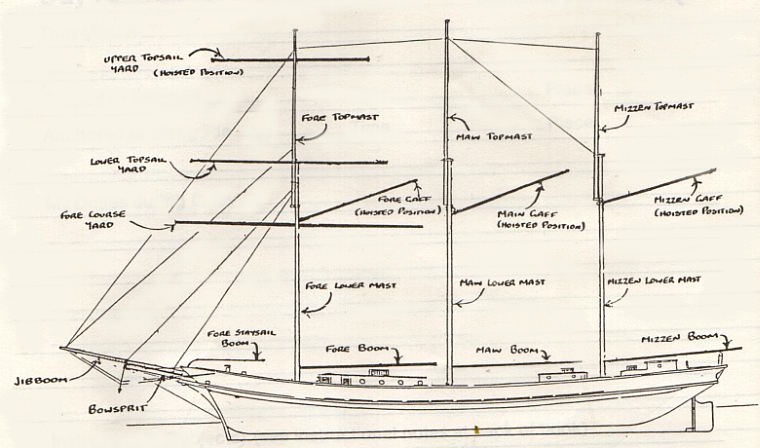 UPPER TOPSAIL
YARD
(HOISTED POSITION)
FORE TOPMAST
MAIN TOPMAST
MIZZEN TOPMAST
LOWER TOPSAIL
YARD
FORE GAFF
(HOISTED POSITION)
MAIN GAFF
(HOISTED POSITION)
MIZZEN GAFF
(HOISTED POSITION)
FORE COURSE
YARD
FORE LOWER MAST
MAIN LOWER MAST
MIZZEN LOWER MAST
FORE STAYSAIL
BOOM
FORE BOOM
MAIN BOOM
MIZZEN BOOM
JIBBOOM
BOWSPRIT